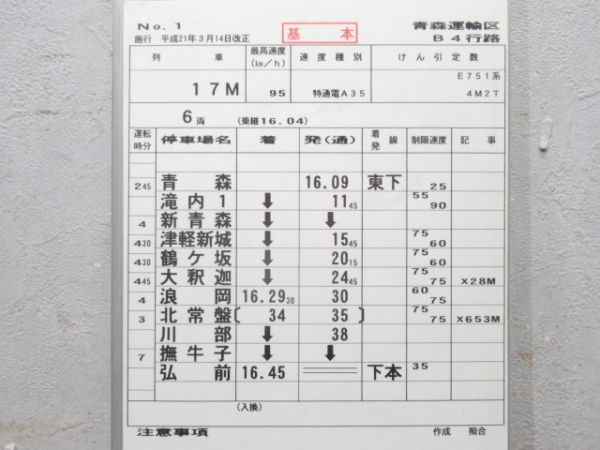 No. 1 基本 青森運輸区
施行 平成21年3月14日改正 B4行路
列車 最高速度(㎞/h) 速度種別 けん引定数
17M 95 特通電A35 E751系 4M2T
6両 (乗継16.04)
運転時分 停車場名 着 発(通) 着発線 制限速度 記事
245 青森 16.09 東下 25
滝内1 ↓ 1145 55 90
4 新青森 ↓ ↓
430 津軽新城 ↓ 1545 75 60
430 鶴ケ坂 ↓ 2015 75 60
445 大釈迦 ↓ 2445 75 75 X28M
4 浪岡 16.2930 30 60 75
3 北常盤 〔 34 35 〕 75 75 X653M
川部 ↓ 38
7 撫牛子 ↓ ↓
弘前 16.45 下本 35
(入換)
注意事項 作成 照合